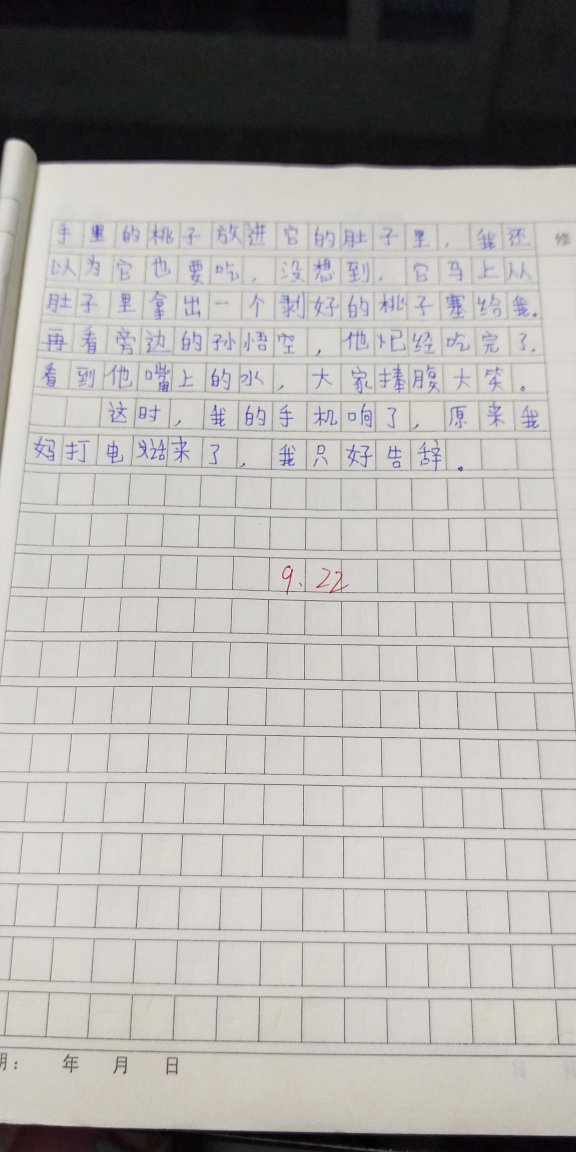 手里的桃子放进它的肚子里，我还
修
以为它也要吃，没想到，它马上从
肚子里拿出一个剥好的桃子塞给我。
再看旁边的孙悟空，他已经吃完了，
看到他嘴上的水，大家捧腹大笑。
这时，我的手机响了，原来我
妈打电话来了，我只好告辞。
9.22
期： 年 月 日